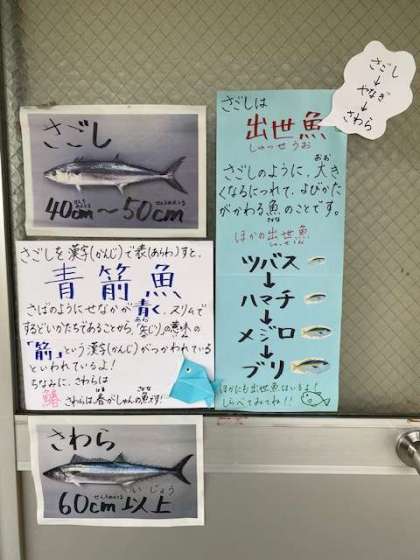 さごし
40cm～50cm
せんちめーとる
せんちめーとる
さごしを漢字(かんじ)で表(あらわ)すと、
青箭魚
さばのようにせなかが青く、スリムで
あお
するどいかたちであることから「矢(や)じり」の意味の
「箭」という漢字(かんじ)がつかわれている
といわれているよ！
ちなみに、さわらは
鰆
さわらは、春がしゅんの魚です！
はる
さかな
さわら
60cm以上
せんちめーとる
いじょう
さごしは
出世魚
しゅっせうお
さごしのように、大き
おお
くなるにつれて、よびかた
がかわる魚のことです。
さかな
ほかの出世魚
しゅっせ
ツバス
↓
ハマチ
↓
メジロ
↓
ブリ
ほかにも出世魚はいるよ！
しらべてみてね！！
さごし
↓
やなぎ
↓
さわら